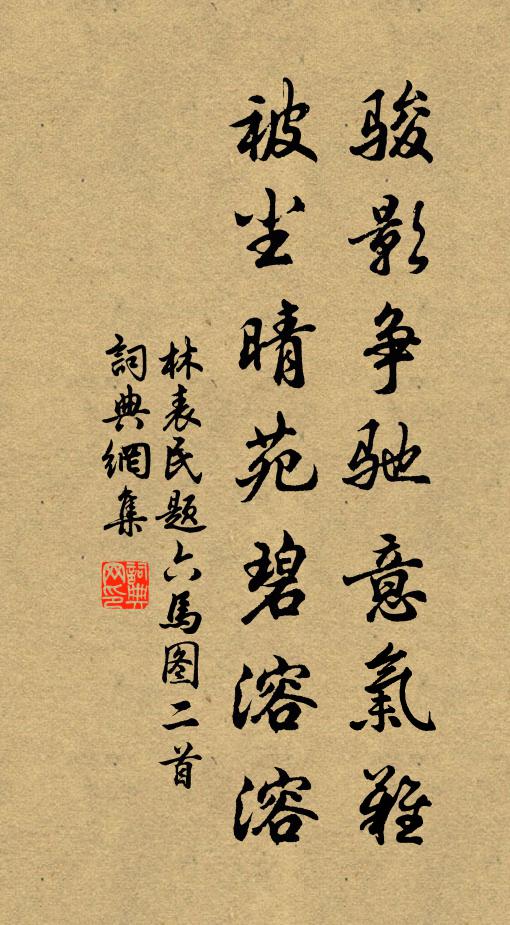 骏影争驰意氣
被尘晴苑碧溶溶
林表民题六馬图二首
詞典網集
詞典网印